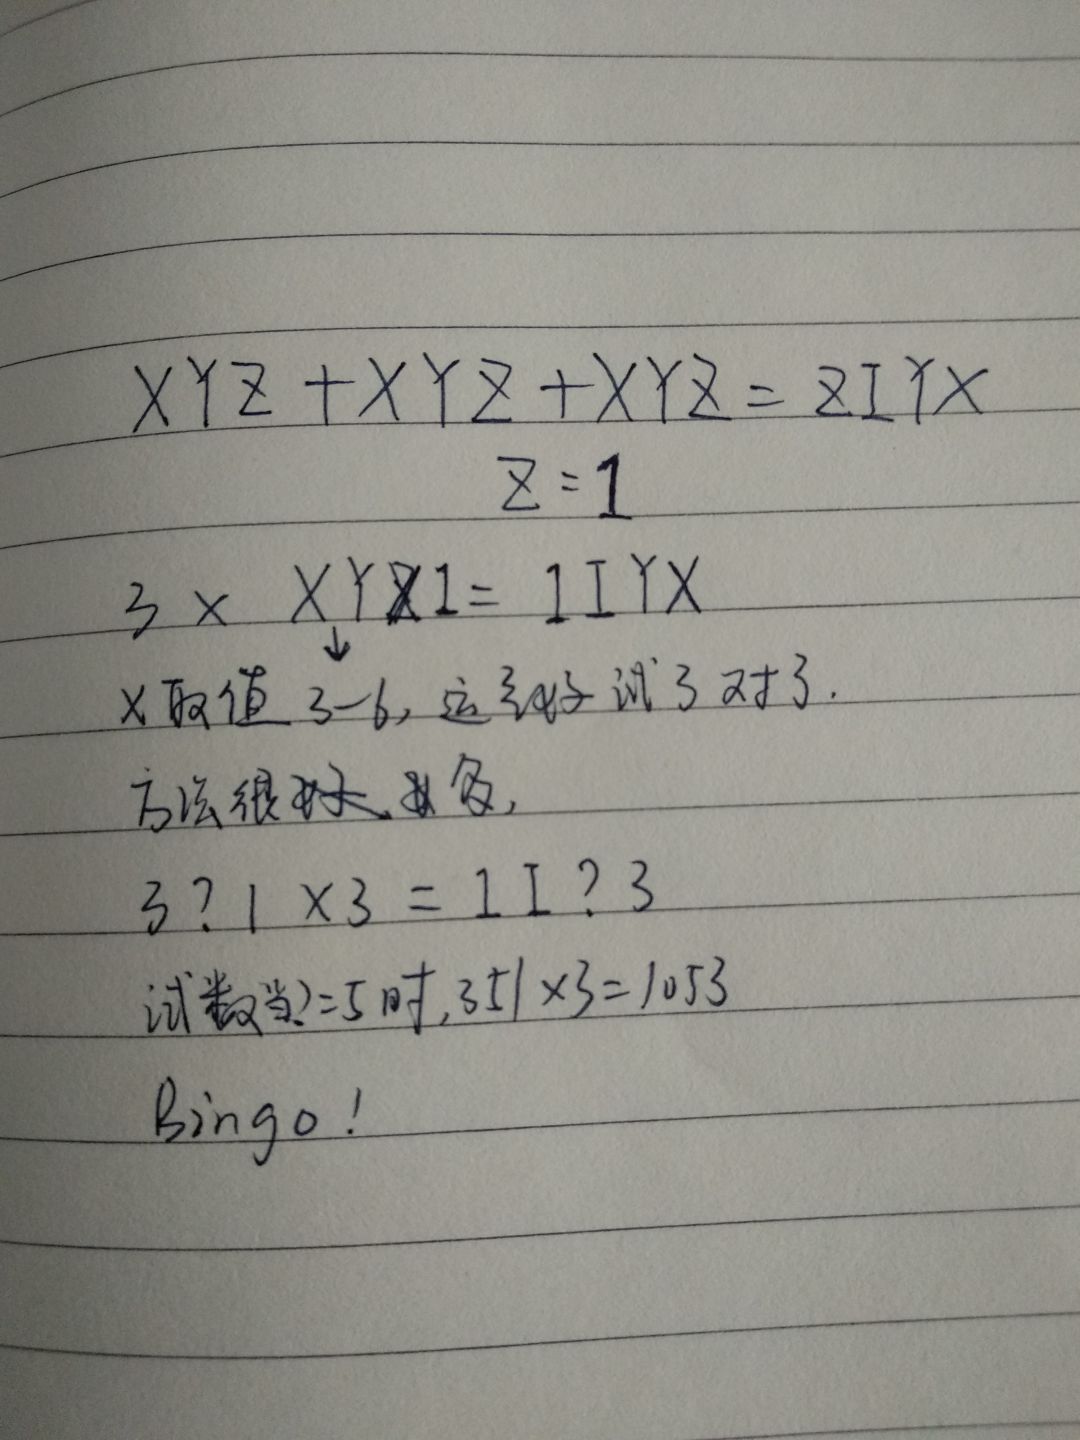 XYZ+XYZ+XYZ=ZIYX
Z=1
3× XY1= 1IYX
↓
X取值 3-6, 这 好 试 3 对 3.
方法很
3?1 ×3 = 1I?3
试数当?=5时,351×3=1053
Bingo!